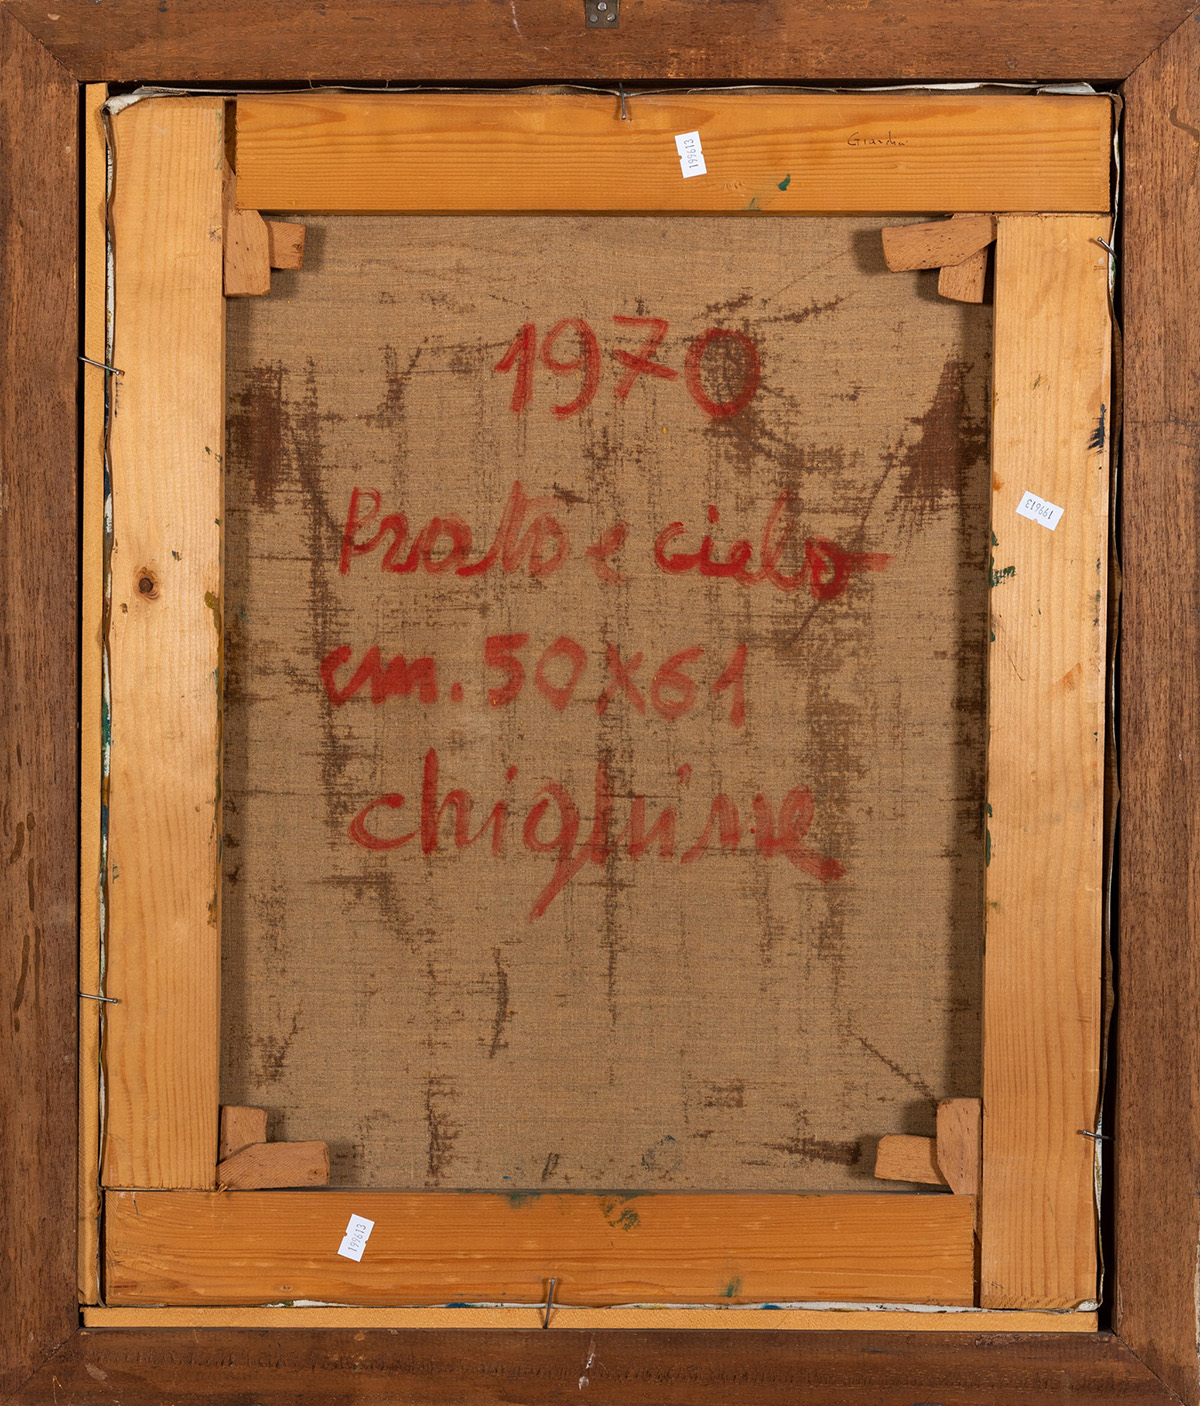 199613
1970
Prato e cielo
cm. 50x61
chighine
199613
199613